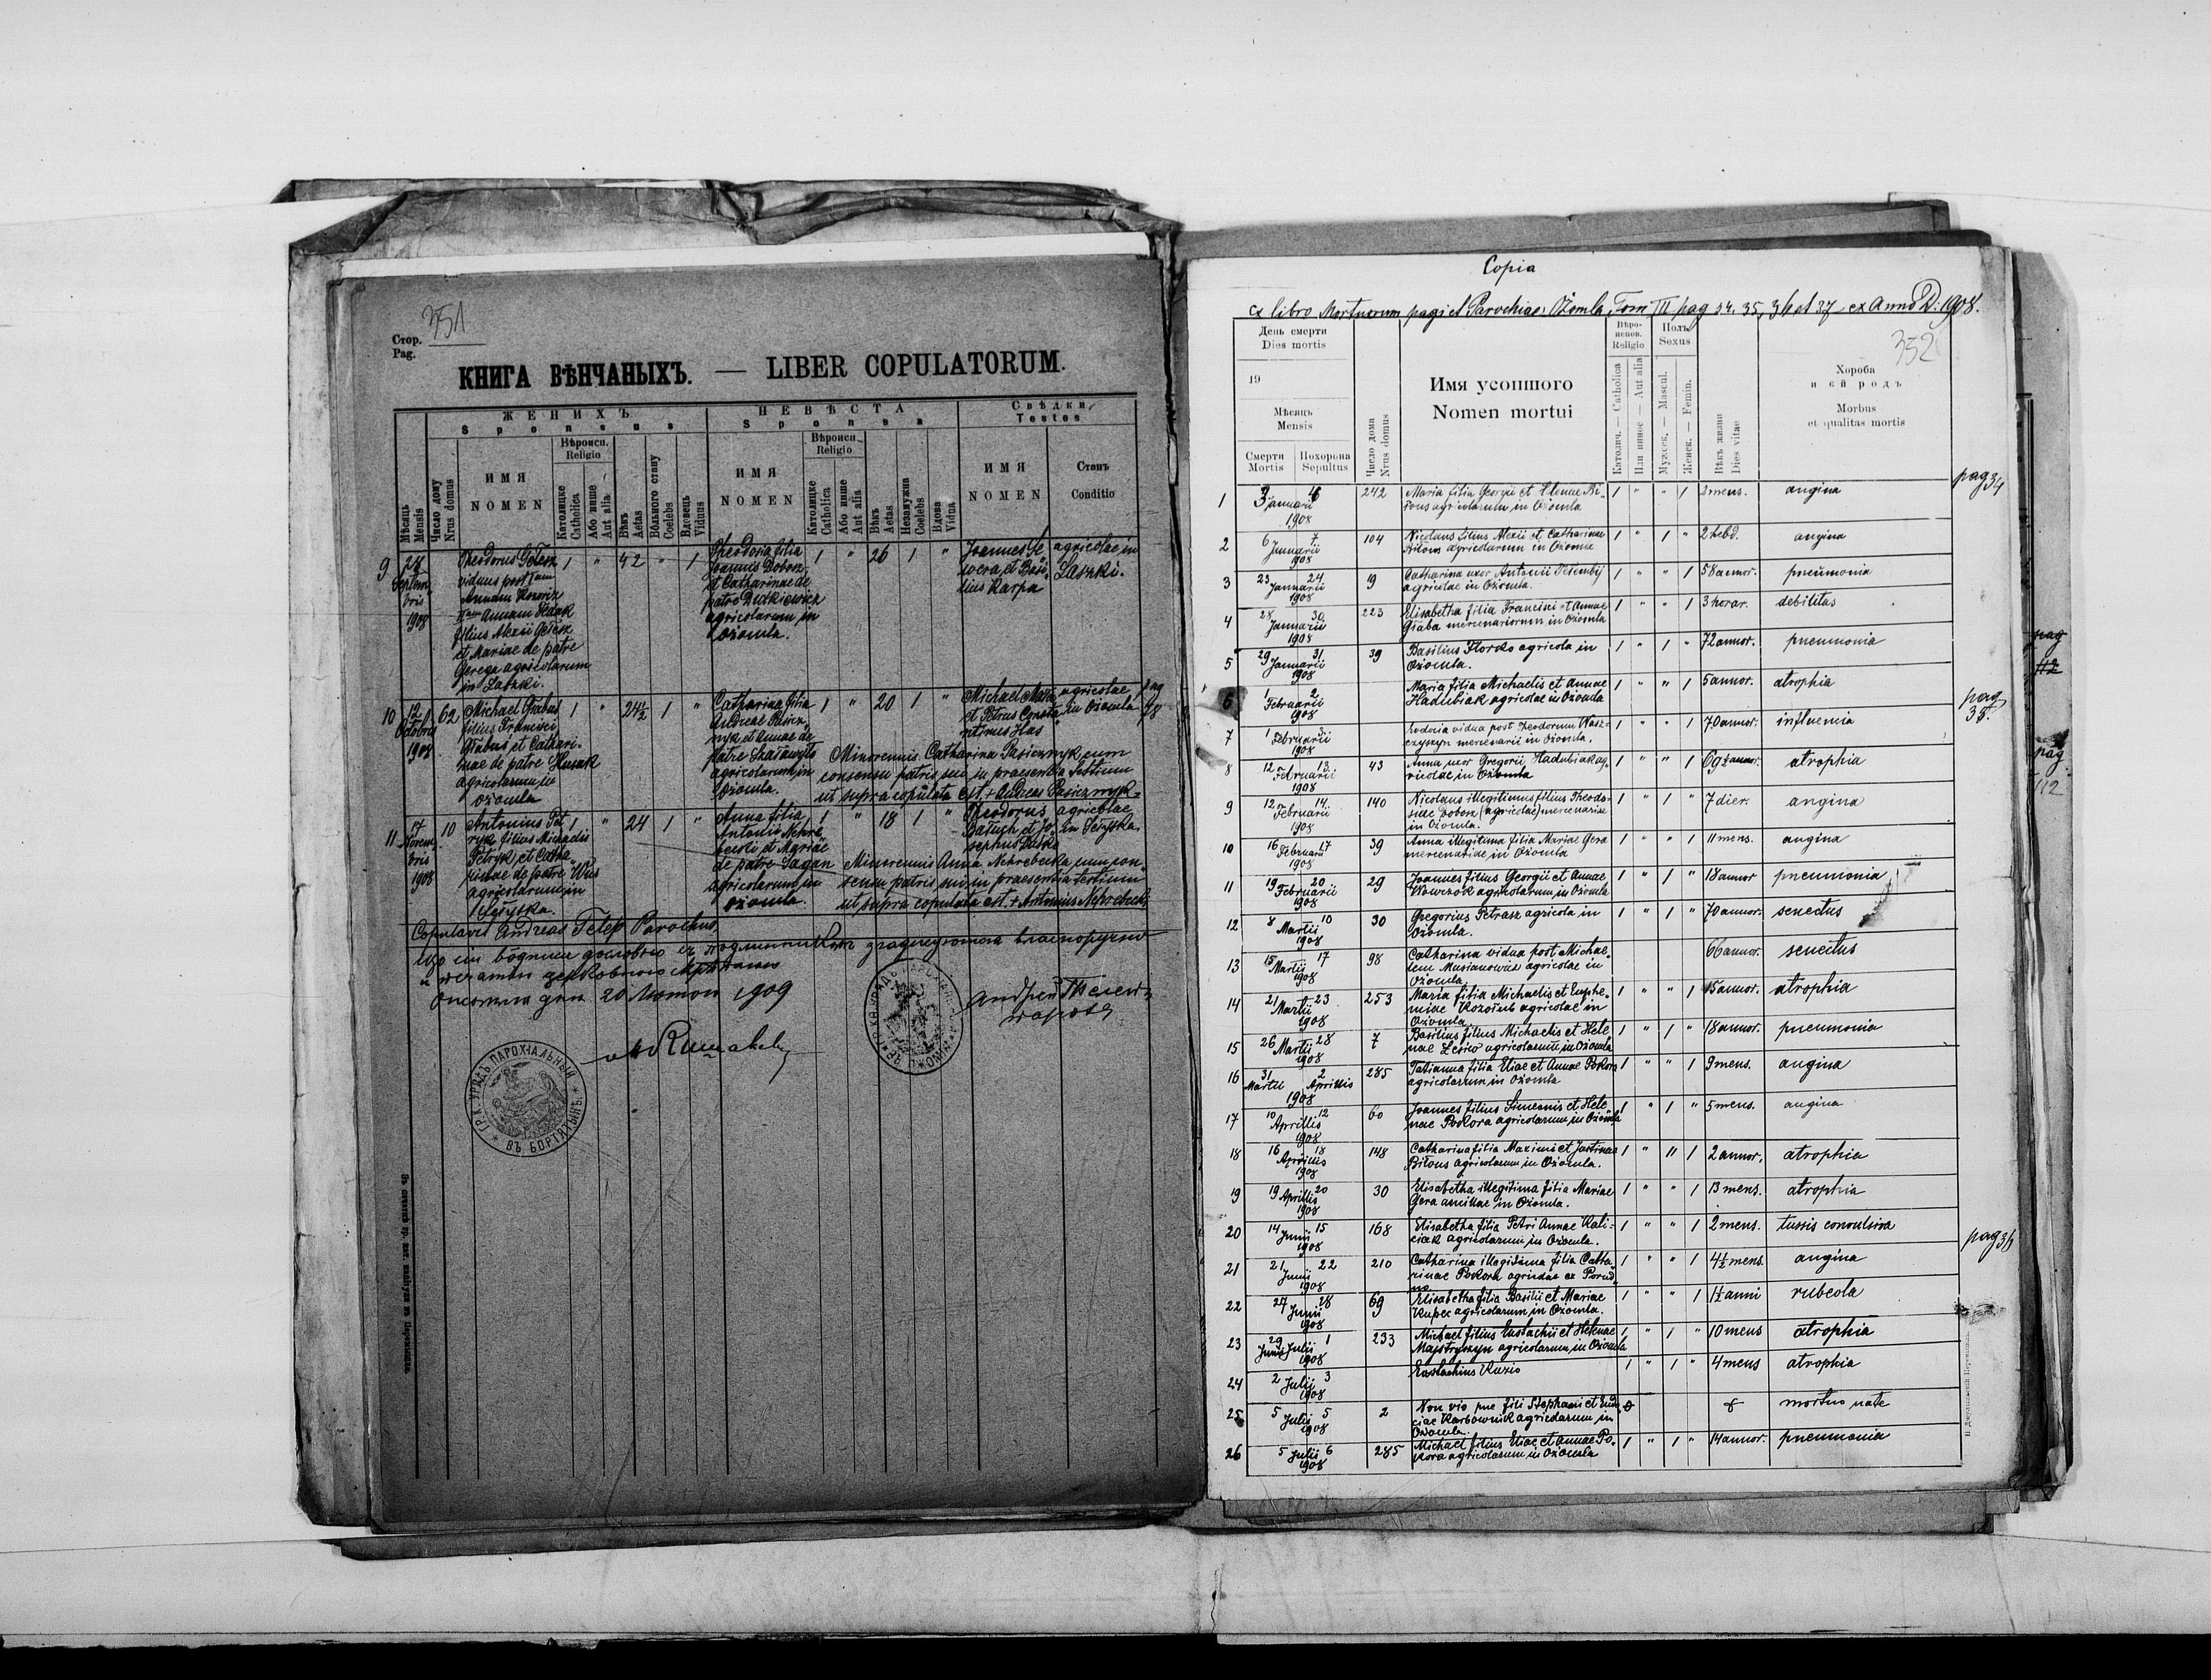 Стор. 351
Pag.
КНИГА ВѢНЧАНЫХЪ. — LIBER COPULATORUM.
ЖЕНИХЪ
Sponsus
НЕВѢСТА
Sponsa
Свѣдки
Testes
Мѣсяць
Mensis
Число дому
Nrus domus
ИМЯ
NOMEN
Вѣроисп.
Religio
Католицке
Catholica
Або инше
Aut alia
Вѣкъ
Aetas
Вольного стану
Coelebs
Вдовець
Viduus
ИМЯ
NOMEN
Вѣроисп.
Religio
Католицке
Catholica
Або инше
Aut alia
Вѣкъ
Aetas
Незамужна
Coelebs
Вдова
Vidua
ИМЯ
NOMEN
Станъ
Conditio
9
Septem
bris
1908
Theodorus
viduus post Iam
Annam
IIam Annam
filius Alexii
et Mariae de patre
Gerega agricolarum
in Laszki.
1 " 42 " 1
Theodosia filia
Joannis Dobosz
et Catharinae de
patre Dudkiewicz
agricolarum in
Ożomla.
1 " 26 1 "
Joannes Se
wera, et Basi
lius Karpa
agricolae in
Laszki.
10
12
Octobris
1908
62
Michael Grabas
filius Francisci
Grabas, et Cathari-
nae de patre Husak
agricolarum in
Ożomla
1 " 24½ 1 "
Catharina filia
Andreae Pasicz
nyk et Annae de
patre
agricolarum in
Ożomla.
1 " 20 1 "
Michael
et Petrus
agricolae
in Ożomla
pag
78
Minorennis Catharina Pasicznyk cum
consensu patris sui in praesentia testium
ut supra copulata est. + Andreas Pasicznyk =
11
17
Novem
bris
1908
10
Antonius Pet
ryk filius Michaelis
Petryk, et Catha
rinae de patre Wus
agricolarum in
1 " 24 1 "
Anna filia
Antonii Nehre
becki et Mariae
de patre Sagan
agricolarum in
Ożomla.
1 " 18 1 "
Theodorus
et Jo
sephus
agricolae
in
Minorennis Anna Nehrebecka cum con
sensu patris sui in praesentia testium
ut supra copulata est. + Antonius Nehrebecki
Copulavit Andreas Telep Parochus
1909
Андрей Телеп
ГР. К. УРЯДЪ ПАРОХІАЛЬНЫЙ * ВЪ БОРТЯТЫНѢ *
Copia
ex libro Mortuorum pagi et Parochiae Ożomla Tom III pag 34. 35, 36 et 37 ex Anno D: 1908.
352
День смерти
Dies mortis
19
Мѣсяць
Mensis
Смерти
Mortis
Похорона
Sepultus
Число дома
Nrus domus
Имя усопшого
Nomen mortui
Вѣро-
исповѣ.
Religio
Католич. — Catholica
Или инное — Aut alia
Полъ
Sexus
Мужеск. — Mascul.
Женск. — Femin.
Вѣкъ жизни
Dies vitae
Хороба
и єй родъ
Morbus
et qualitas mortis
1 3 Januarii 1908 242 Maria filia Georgii et Helenae Bi-
łous agricolarum in Ożomla 1 " " 1 2 mens. angina pag 34
2 6 Januarii 7 1908 104 Nicolaus filius Alexii et Catharinae
Biłous agricolarum in Ożomla 1 " 1 " 2 hebd. angina
3 23 Januarii 24 1908 19 Catharina uxor Antonii
agricolae in Ożomla. 1 " " 1 58 annor. pneumonia
4 28 Januarii 30 1908 223 Elisabetha filia Francisci et Annae
Graba mercenariorum in Ożomla 1 " " 1 3 horar. debilitas
5 29 Januarii 31 1908 39 Basilius Florko agricola in
Ożomla. 1 " 1 " 72 annor. pneumonia
6 1 Februarii 2 1908 Maria filia Michaelis et Annae
Hadubiak agricolae in Ożomla 1 " " 1 5 annor. atrophia pag 35.
7 1 Februarii 3 1908 vidua post Theodorum Wasz-
czyszyn mercenarii in Ożomla. 1 " " 1 70 annor. influencia
8 12 Februarii 13 1908 43 Anna uxor Gregorii Hadubiak ag
ricolae in Ożomla 1 " " 1 69½ annor. atrophia
9 12 Februarii 14 1908 140 Nicolaus illegitimus filius Theodo-
siae Dobosz (agricolae) mercenariae
in Ożomla. 1 " 1 " 7 dier. angina
10 16 Februarii 17 1908 39 Anna illegitima filia Mariae Gera
mercenariae in Ożomla 1 " " 1 11 mens. angina
11 19 Februarii 20 1908 29 Joannes filius Georgii et Annae
Wowczok agricolarum in Ożomla 1 " 1 " 18 annor pneumonia
12 8 Martii 10 1908 30 Gregorius Petrasz agricola in
Ożomla. 1 " 1 " 70 annor. senectus
13 15 Martii 17 1908 98 Catharina vidua post Michae-
lem Musianowicz agricolae in
Ożomla. 66 annor. senectus
14 21 Martii 23 1908 253 Maria filia Michaelis et Euphe-
miae agricolae in
Ożomla. 1 " " 1 15 annor. atrophia
15 26 Martii 28 1908 7 Basilius filius Michaelis et Hele
nae Lesiw agricolarum in Ożomla 1 " 1 " 18 annor. pneumonia
16 31 Martii 2 Aprillis 1908 285 Tatianna filia Eliae et Annae Pokora
agricolarum in Ożomla 1 " " 1 9 mens. angina
17 10 Aprillis 12 1908 60 Joannes filius Simeonis et Hele
nae Pokora agricolarum in Ożomla 1 " 1 " 5 mens. angina
18 16 Aprillis 18 1908 148 Catharina filia Maximi et Justinae
Biłous agricolarum in Ożomla. 1 " " 1 2 annor. atrophia
19 19 Aprillis 20 1908 30 Elisabetha illegitima filia Mariae
Gera ancillae in Ożomla. 1 " " 1 13 mens. atrophia
20 14 Junii 15 1908 168 Elisabetha filia Petri Annae Kali-
ciak agricolarum in Ożomla. 1 " " 1 2 mens. tussis convulsiva pag 36
21 21 Junii 22 1908 210 Catharina illegitima filia Catha-
rinae Pokora agricolae ex Porud
no. 1 " " 1 4½ mens. angina
22 27 Junii 28 1908 69 Elisabetha filia Basilii et Mariae
Kupec agricolarum in Ożomla. 1 " " 1 1½ anni rubeola
23 29 Junii Julii 1 1908 233 Michael filius Eustachii et Helenae
Majstryszyn agricolarum in Ożomla 1 " 1 " 10 mens atrophia
24 2 Julii 3 1908 Eustachius Kuzio 1 " 1 " 4 mens atrophia
25 5 Julii 5 1908 2 Non vio fili Stephani et
Karbownik agricolarum in
Ożomla. mortuo nate
26 5 Julii 6 1908 285 Michael filius Eliae et Annae Po-
kora agricolarum in Ożomla 1 " 1 " 14 annor. pneumonia
pag
112
pag
112